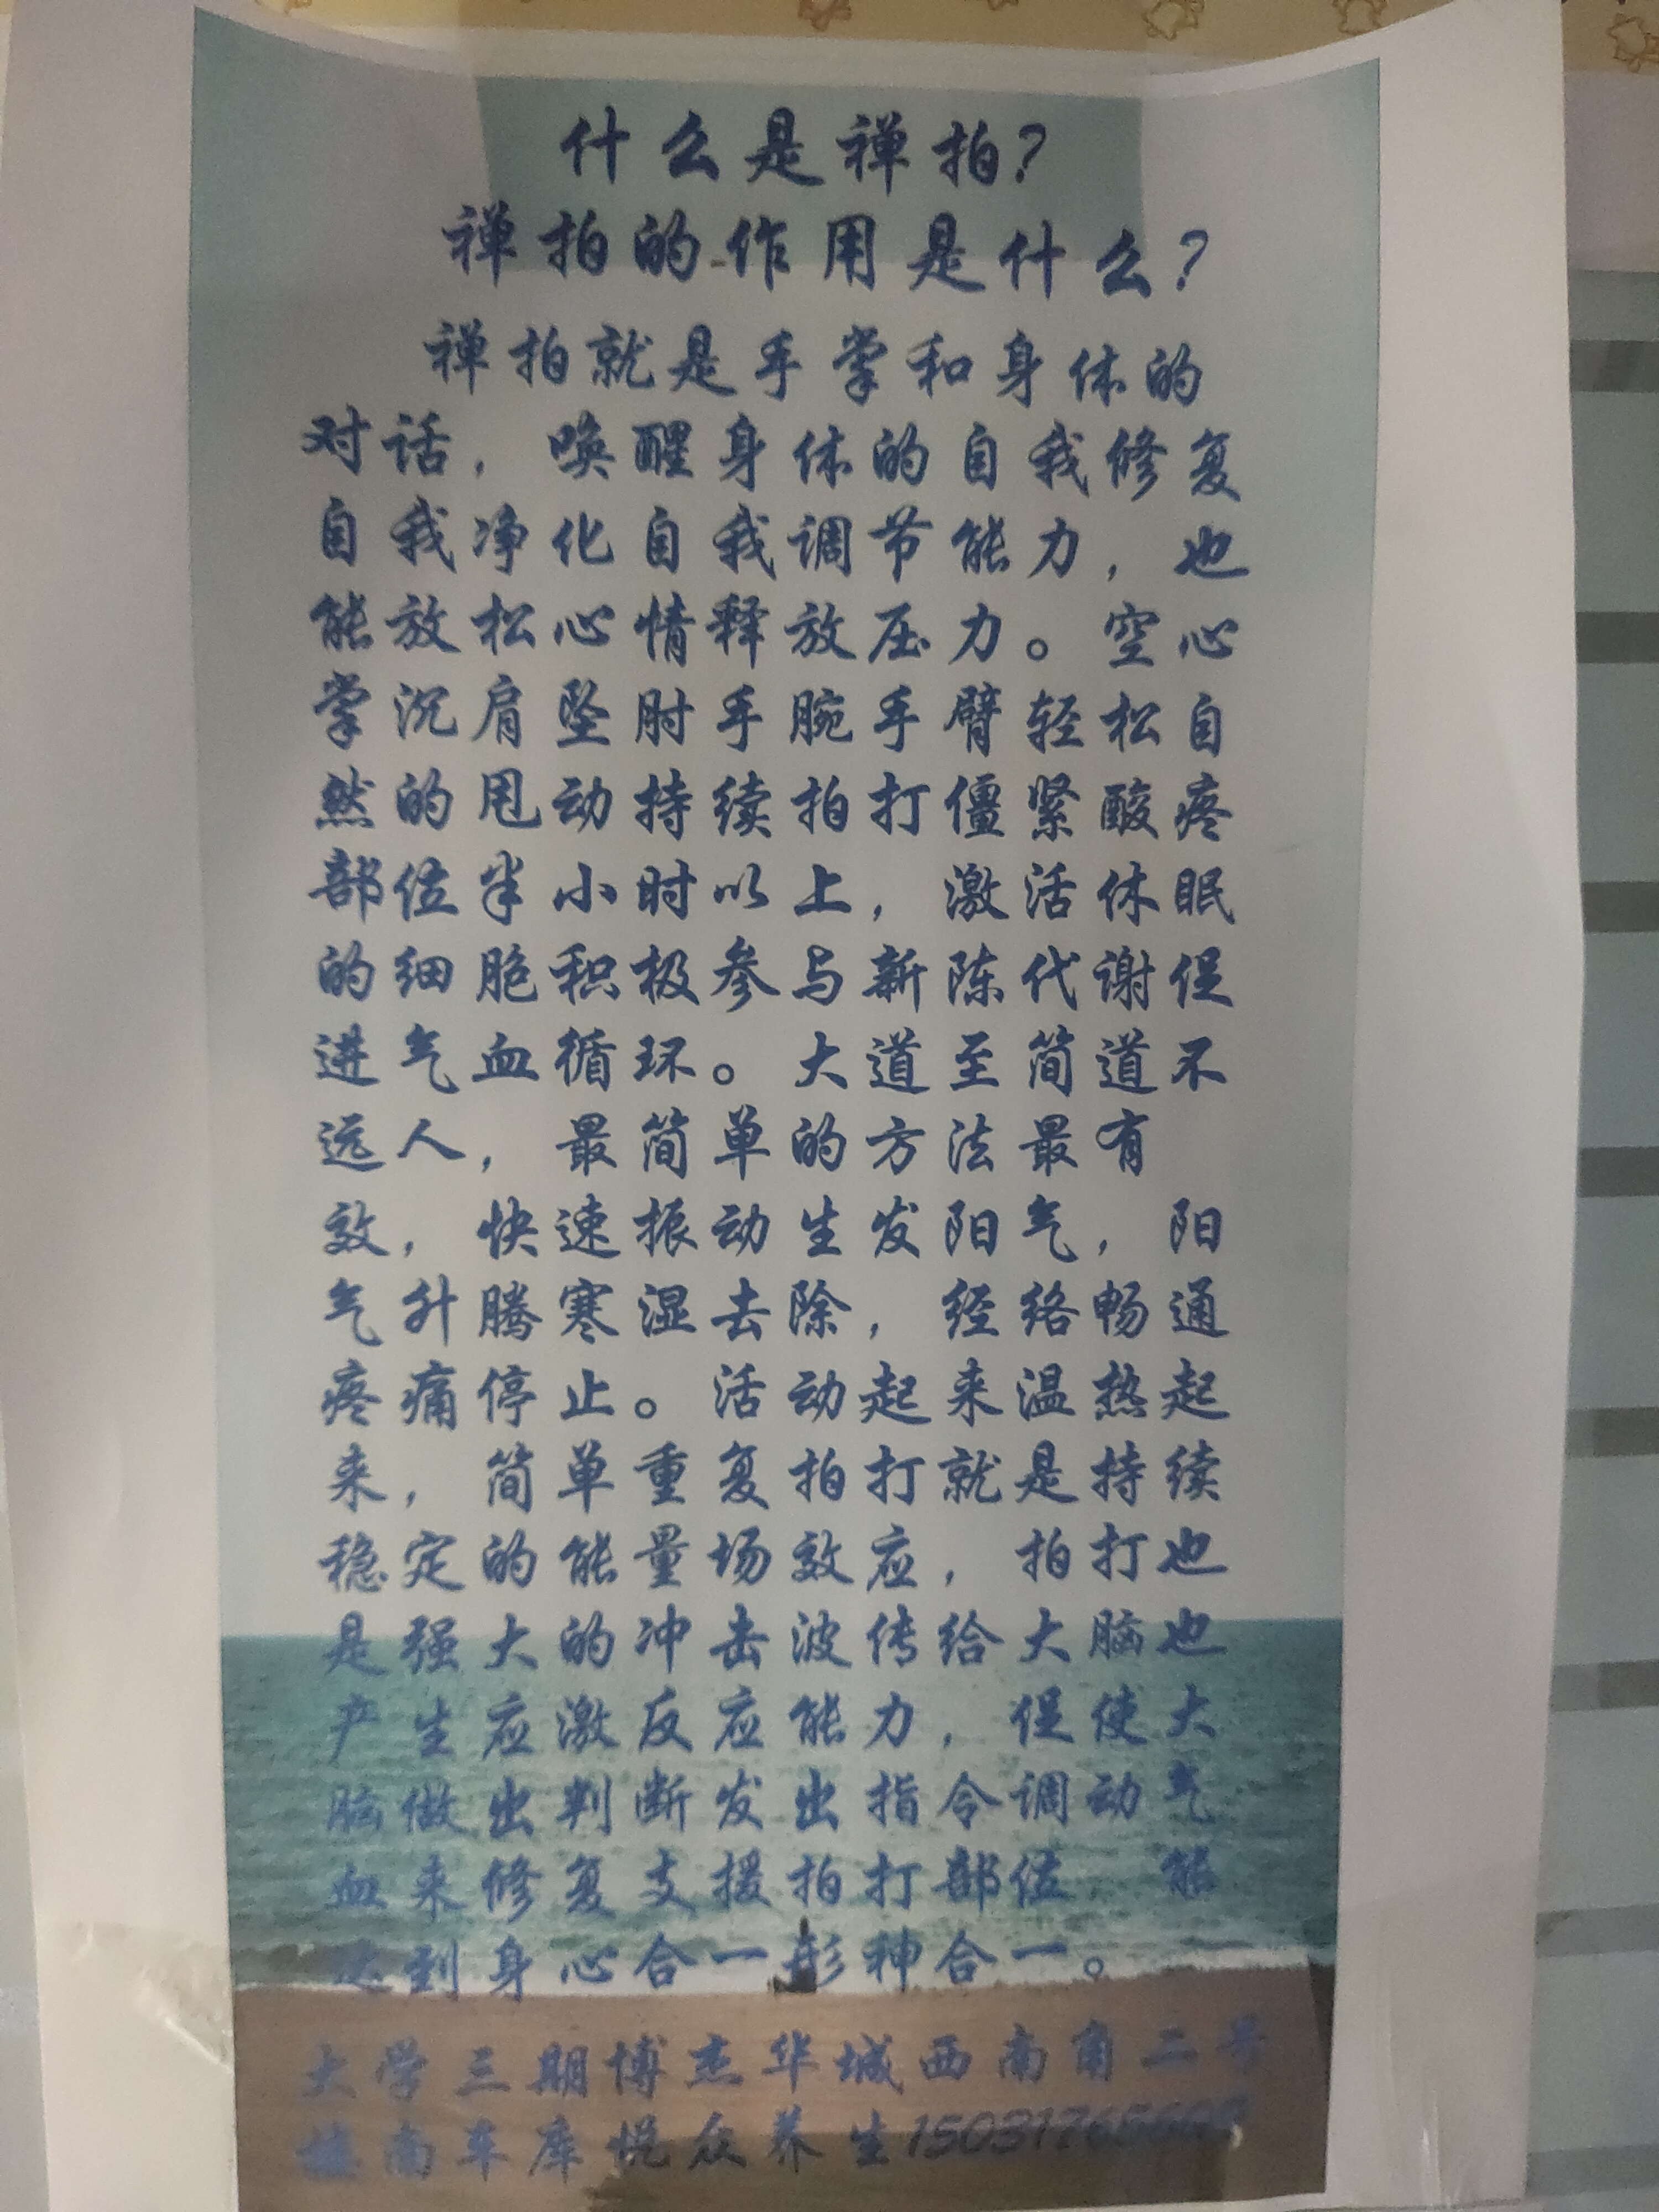 什么是禅拍?
禅拍的作用是什么?
禅拍就是手掌和身体的
对话，唤醒身体的自我修复
自我净化自我调节能力，也
能放松心情释放压力。空心
掌沉肩坠肘手腕手臂轻松自
然的甩动持续拍打僵紧酸疼
部位半小时以上，激活休眠
的细胞积极参与新陈代谢促
进气血循环。大道至简道不
远人，最简单的方法最有
效，快速振动生发阳气，阳
气升腾寒湿去除，经络畅通
疼痛停止。活动起来温热起
来，简单重复拍打就是持续
稳定的能量场效应，拍打也
是强大的冲击波传给大脑也
产生应激反应能力，促使大
脑做出判断发出指令调动气
血来修复支援拍打部位 能
达到身心合一形神合一。
大学三期博杰华城西南角二号
楼南车库悦众养生